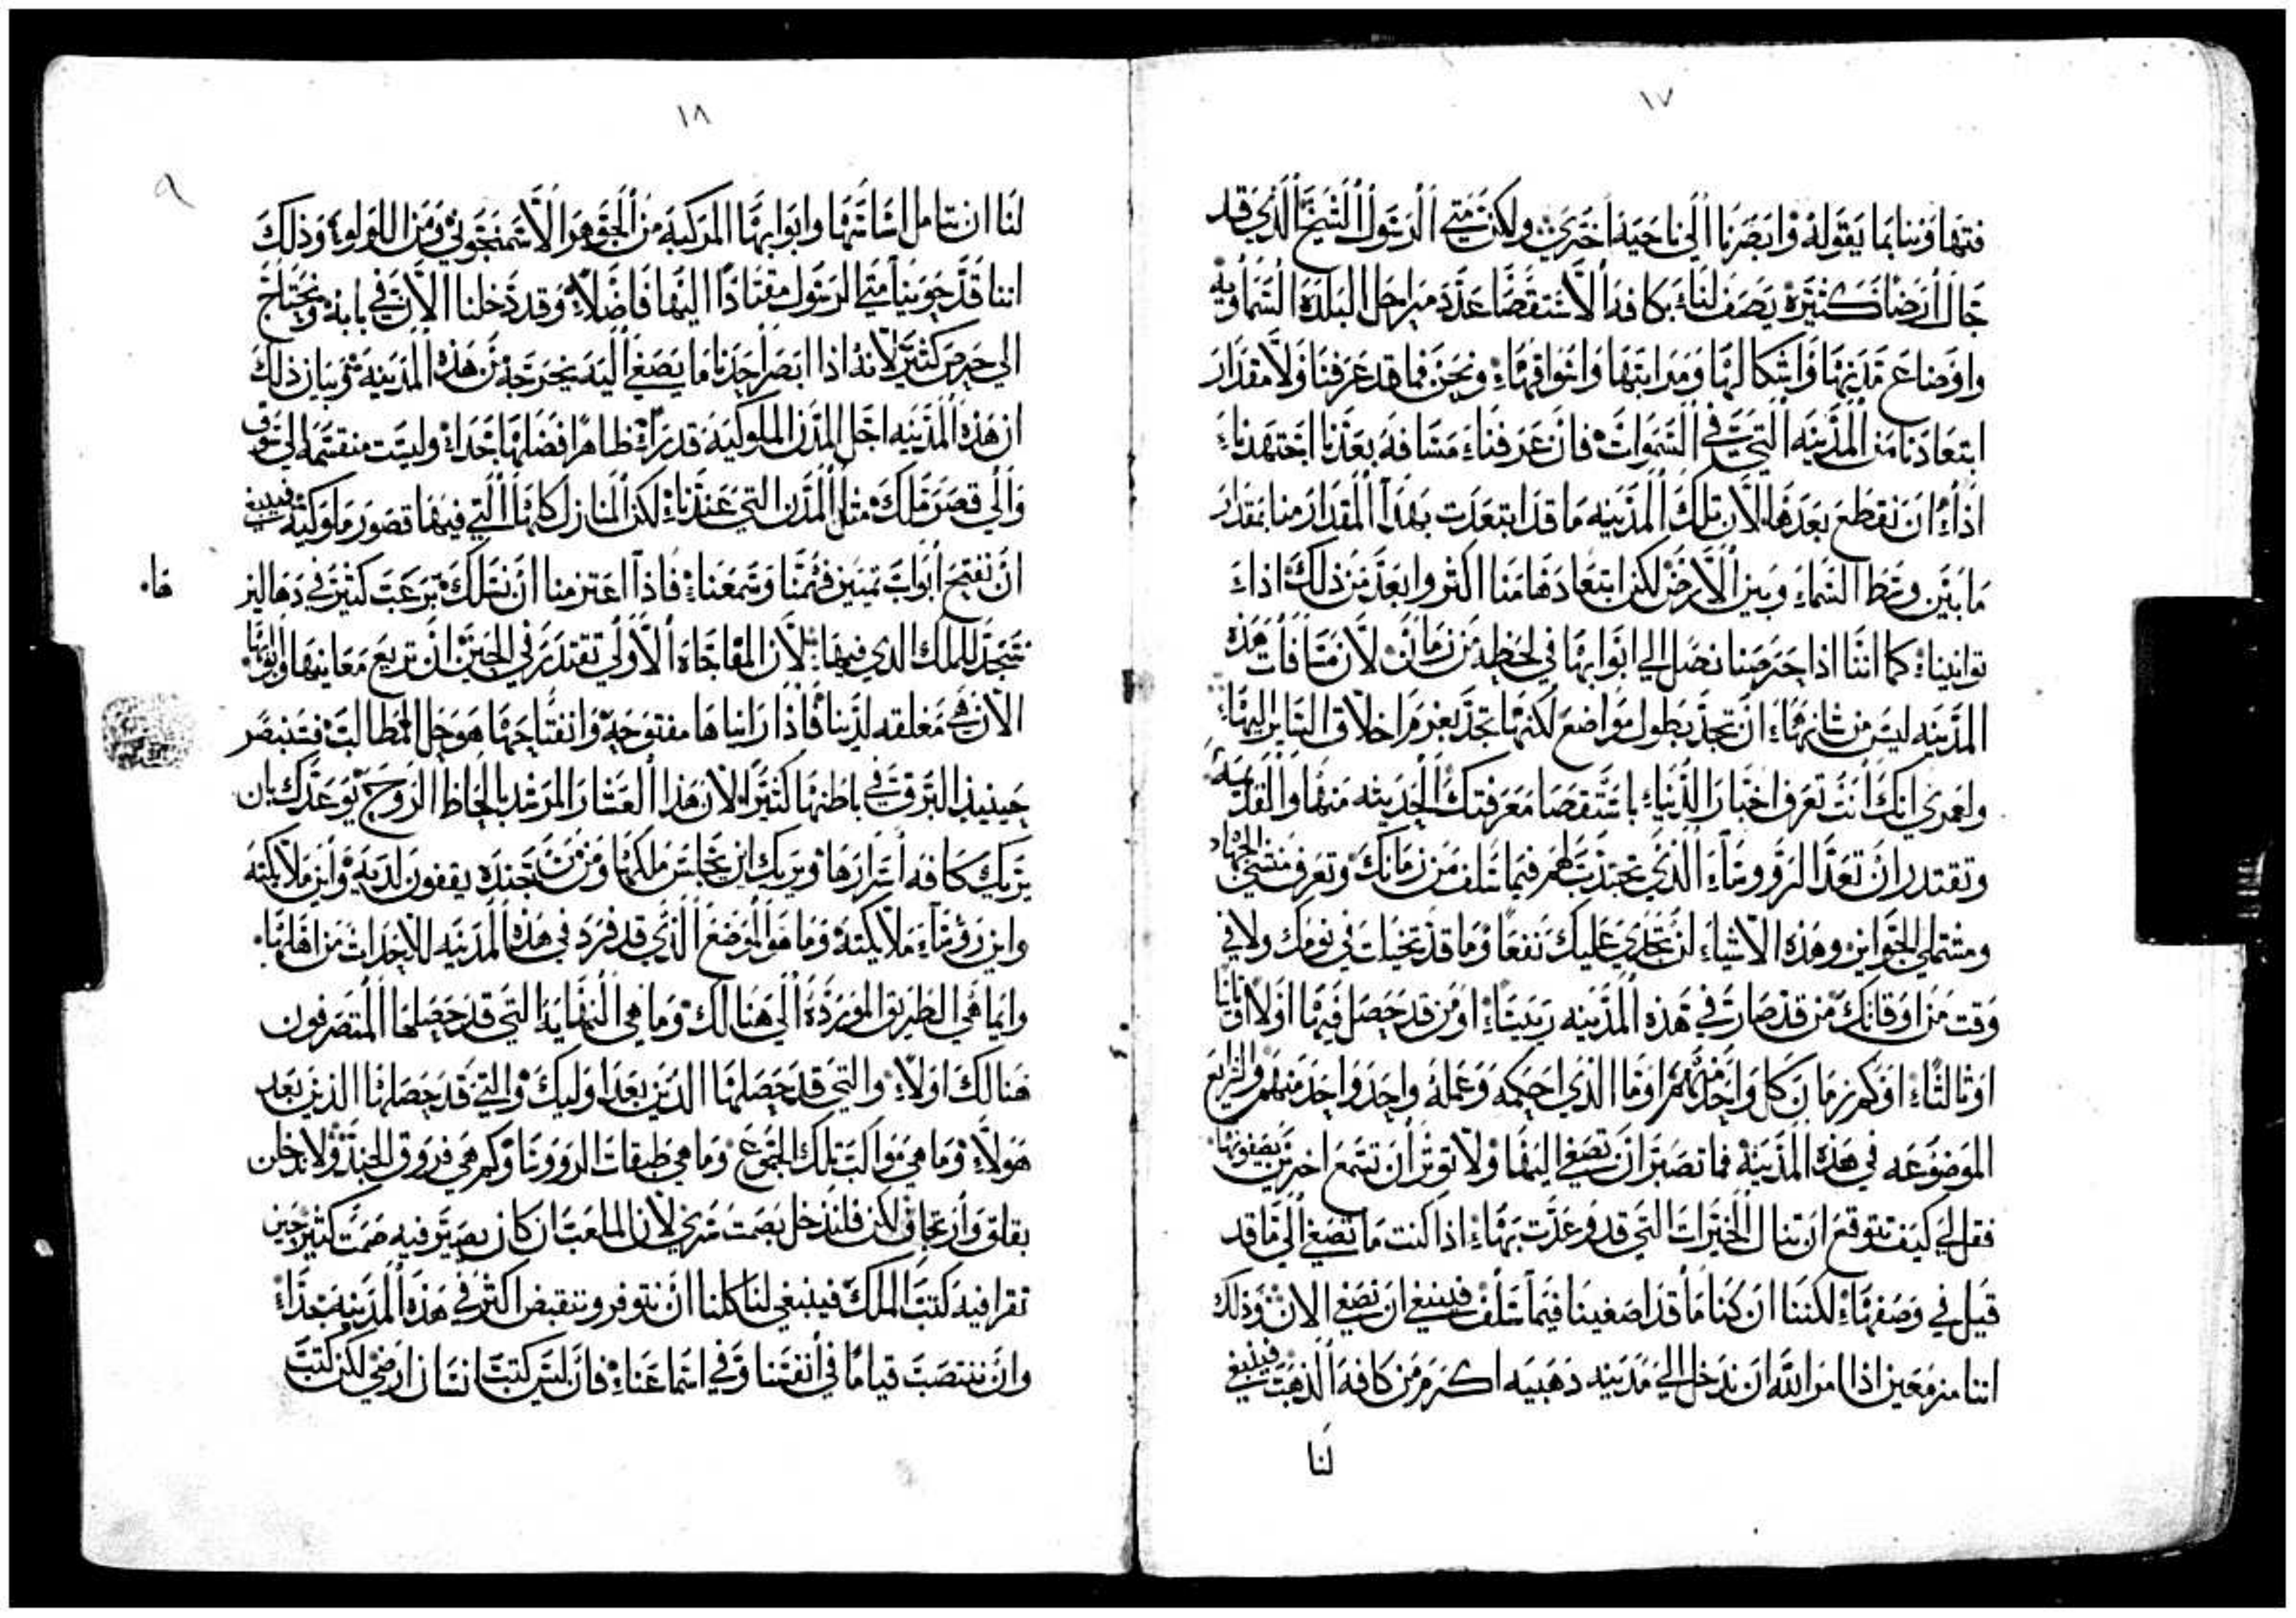 ١٧
فتهاوننا بما يقوله وابصرنا الى ناحيه اخرى ولكن متى الرسول الشيخ الذي قد
جال ارضا كثيره يصف لنا بكافه الاستقصا عدد مراحل البلده السماويه
واوضاع مدنها واشكالها ومراتبها واسواقها ونحن فما قد عرفنا ولا مقدار
ابتعادنا من المدينه التي في السموات فان عرفنا مسافه بعدنا اجتهدنا
اذا ان نقطع بعدها لان تلك المدينه ما قد ابتعدت بهذا المقدار منا بمقدار
ما بين وسط السماء وبين الارض لكن ابتعادها منا اكثر وابعد من ذلك اذا
توانينا كما اننا اذا حرصنا نصل الى ابوابها في لحظه من زمان لان مسافات هذه
المدينه ليس من شانها ان تحد بطول مواضع لكنها تحد بعزم اخلاق السايرين اليها
ولعمري انك انت تعرف اخبار الدنيا باستقصا معرفتك الحديثه منها والقديمه
وتقتدر ان تعد الرووساء الذي تجندت لهم فيما سلف من زمانك وتعرف منشي الجهاد
ومشتملي الجوايز وهذه الاشياء لن تجدي عليك نفعا وما قد تخيلت في نومك ولا في
وقت من اوقاتك من قد صار في هذه المدينه رييسا او من قد حصل فيها اولا او ثانيا
او ثالثا او كم زمان كل واحد منهم او ما الذي احكمه وعمله واحد واحد منهم والشرايع
الموضوعه في هذه المدينه فما تصبر ان تصغي اليها ولا توثر ان تسمع اخرين يصفونها
فقل لي كيف تتوقع ان تنال الخيرات التي قد وعدت بها اذا كنت ما تصغي الى ما قد
قيل في وصفها لكننا ان كنا ما قد اصغينا فيما سلف فينبغي ان نصغي الان وذلك
اننا مزمعين اذا امر الله ان ندخل الى مدينه ذهبيه اكرم من كافه الذهب فينبغي
لنا
١٨
٩
لنا ان نتامل اساساتها وابوابها المركبه من الجوهر الاسمنجوني ومن اللولو وذلك
اننا قد حوينا متى الرسول مقتادا اليها فاضلا وقد دخلنا الان في بابه ونحتاج
الى حرص كثير لانه اذا ابصر احدنا ما يصغي اليه يخرجه من هذه المدينه وبيان ذلك
ان هذه المدينه اجل المدن الملوكيه قدرا ظاهرا فضلها جدا وليست منقسمه الى سوق
والى قصر ملك مثل المدن التي عندنا لكن المنازل كلها التي فيها قصور ملوكيه فينبغي
ان نفتح ابواب تمييز فهمنا وسمعنا فاذا اعتزمنا ان نسلك برعب كثير في دهاليز
ها
نسجد للملك الذي فيها لان المفاجاه الاولى تقتدر في الحين ان تريع معاينها وابوابها
الان هي مغلقه لدينا فاذا رايناها مفتوحه وانفتاحها هو حل المطالب فسنبصر
حينيذ البرق في باطنها كثيرا لان هذا العشار المرشد بالحاظ الروح يوعدك بان
يريك كافه اسرارها ويريك اين مجلس ملكها ومن من جنده يقفون لديه واين ملايكته
واين روساء ملايكته وما هو الموضع الذي قد فرد في هذه المدينه للاحداث من اهلها
وايما هي الطريق الموردة الى هنالك وما هي النهايه التي قد حصلها المتصرفون
هنالك اولا والتي قد حصلها الدين بعد اوليك والتي قد حصلها الذين بعد
هولاء وما هي مواكب تلك الجموع وما هي طبقات الرووسا وكم هي فروق الجند ولا ندخلن
بقلق وارتجاف لكن فلندخل بصمت سري لان الملعب ان كان يصير فيه صمت كثير حين
تقرا فيه كتب الملك فينبغي لنا كلنا ان نتوقر وننقبض اكثر في هذه المدينه جدا
وان ننتصب قياما في انفسنا وفي اسماعنا فان ليس كتب انسان ارضي لكن كتب